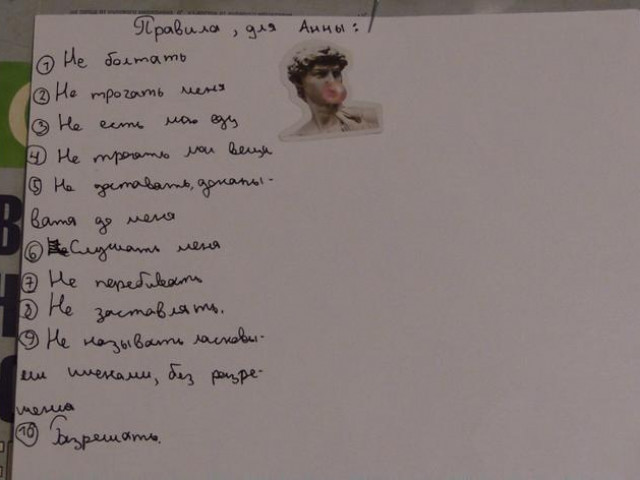 Правила, для Анны:
① Не болтать
② Не трогать меня
③ Не есть мою еду
④ Не трогать мои вещи
⑤ Не доставать, докапы-
вать до меня
⑥ Слушать меня
⑦ Не перебивать
⑧ Не заставлять.
⑨ Не называть ласковы-
ми именами, без разре-
шения
⑩ Разрешать.